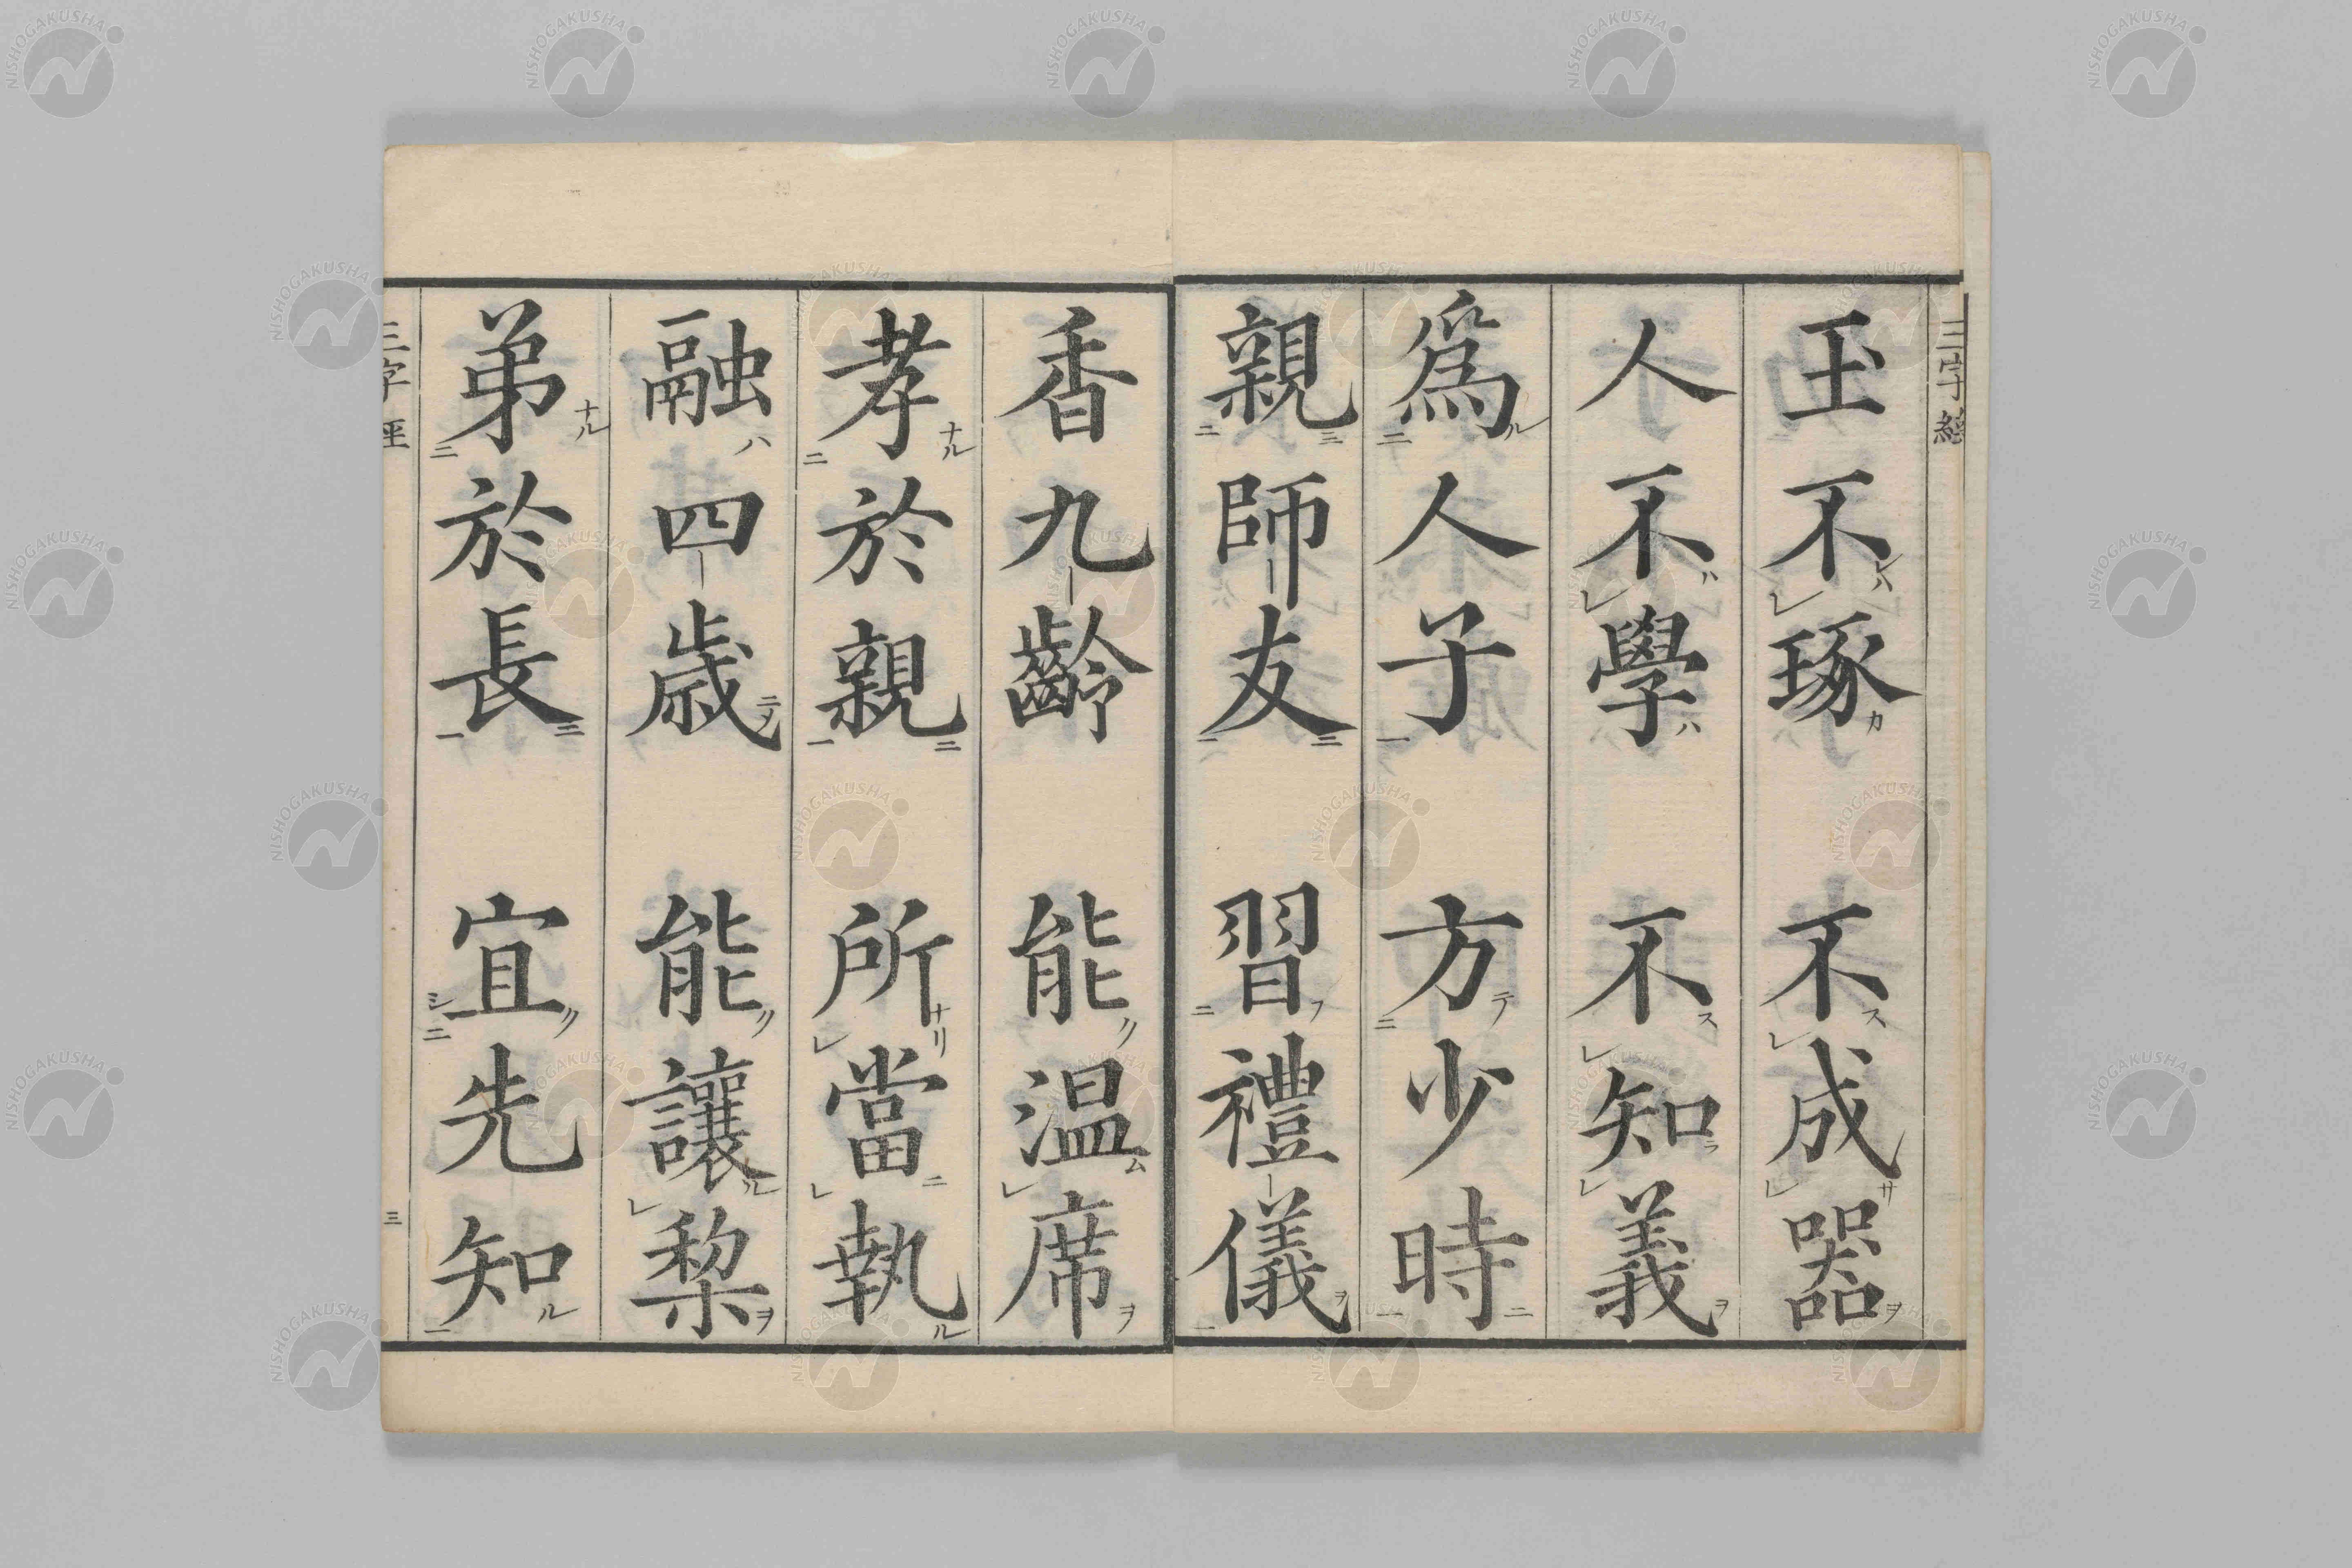 三字經
玉不琢 不成器
人不學 不知義
爲人子 方少時
親師友 習禮儀
香九齡 能温席
孝於親 所當執
融四歳 能讓棃
弟於長 宜先知
三字經 三
NISHOGAKUSHA